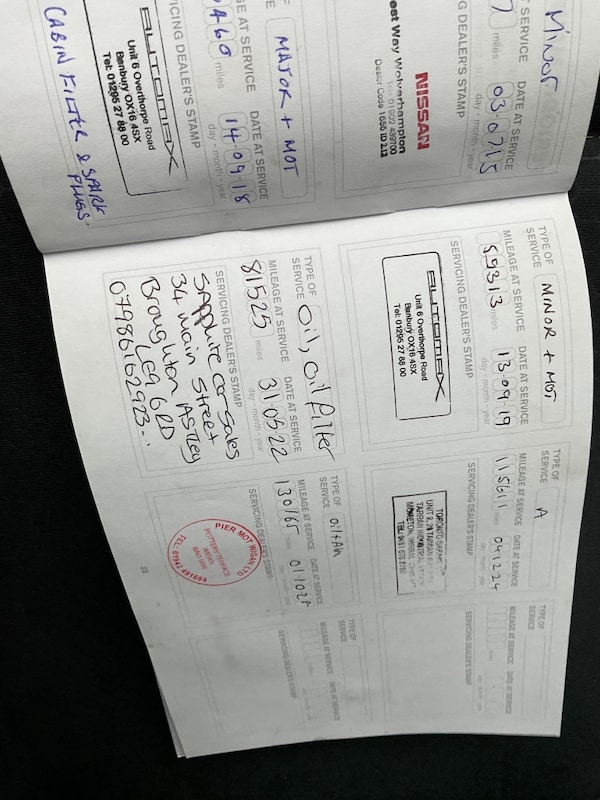 MINOR
AT SERVICE
DATE AT SERVICE
miles
03 07 15
day - month - year
SERVICING DEALER'S STAMP
NISSAN
est Way Wolverhampton
Dealer Code
MAJOR + MOT
AT SERVICE
DATE AT SERVICE
miles
14 09 18
day - month - year
VICING DEALER'S STAMP
AUTOMAX
Unit 6 Overthorpe Road
Banbury OX16 4SX
Tel: 01295 27 88 00
CABIN FILTER & SPARK
PLUGS.
TYPE OF
SERVICE
MINOR + MOT
MILEAGE AT SERVICE
DATE AT SERVICE
59313
miles
13 09 19
day - month - year
SERVICING DEALER'S STAMP
AUTOMAX
Unit 6 Overthorpe Road
Banbury OX16 4SX
Tel: 01295 27 88 00
TYPE OF
SERVICE
Oil, Oil filter
MILEAGE AT SERVICE
DATE AT SERVICE
81525
miles
31 05 22
day - month - year
SERVICING DEALER'S STAMP
Sapphire Car Sales
34 main Street
Broughton Astley
LE9 6RD
TYPE OF
SERVICE
A
MILEAGE AT SERVICE
DATE AT SERVICE
115611
SERVICING DEALER'S STAMP
TYPE OF
SERVICE
oil + Air
MILEAGE AT SERVICE
DATE AT SERVICE
130165
SERVICING DEALER'S STAMP
PIER MOT WIGAN LTD
POTTERY TERRACE
WIGAN
TEL: 01942 491684
TYPE OF
SERVICE
MILEAGE AT SERVICE
DATE AT SERVICE
SERVICING DEALER'S STAMP
TYPE OF
SERVICE
MILEAGE AT SERVICE
DATE AT SERVICE
SERVICING DEALER'S STAMP